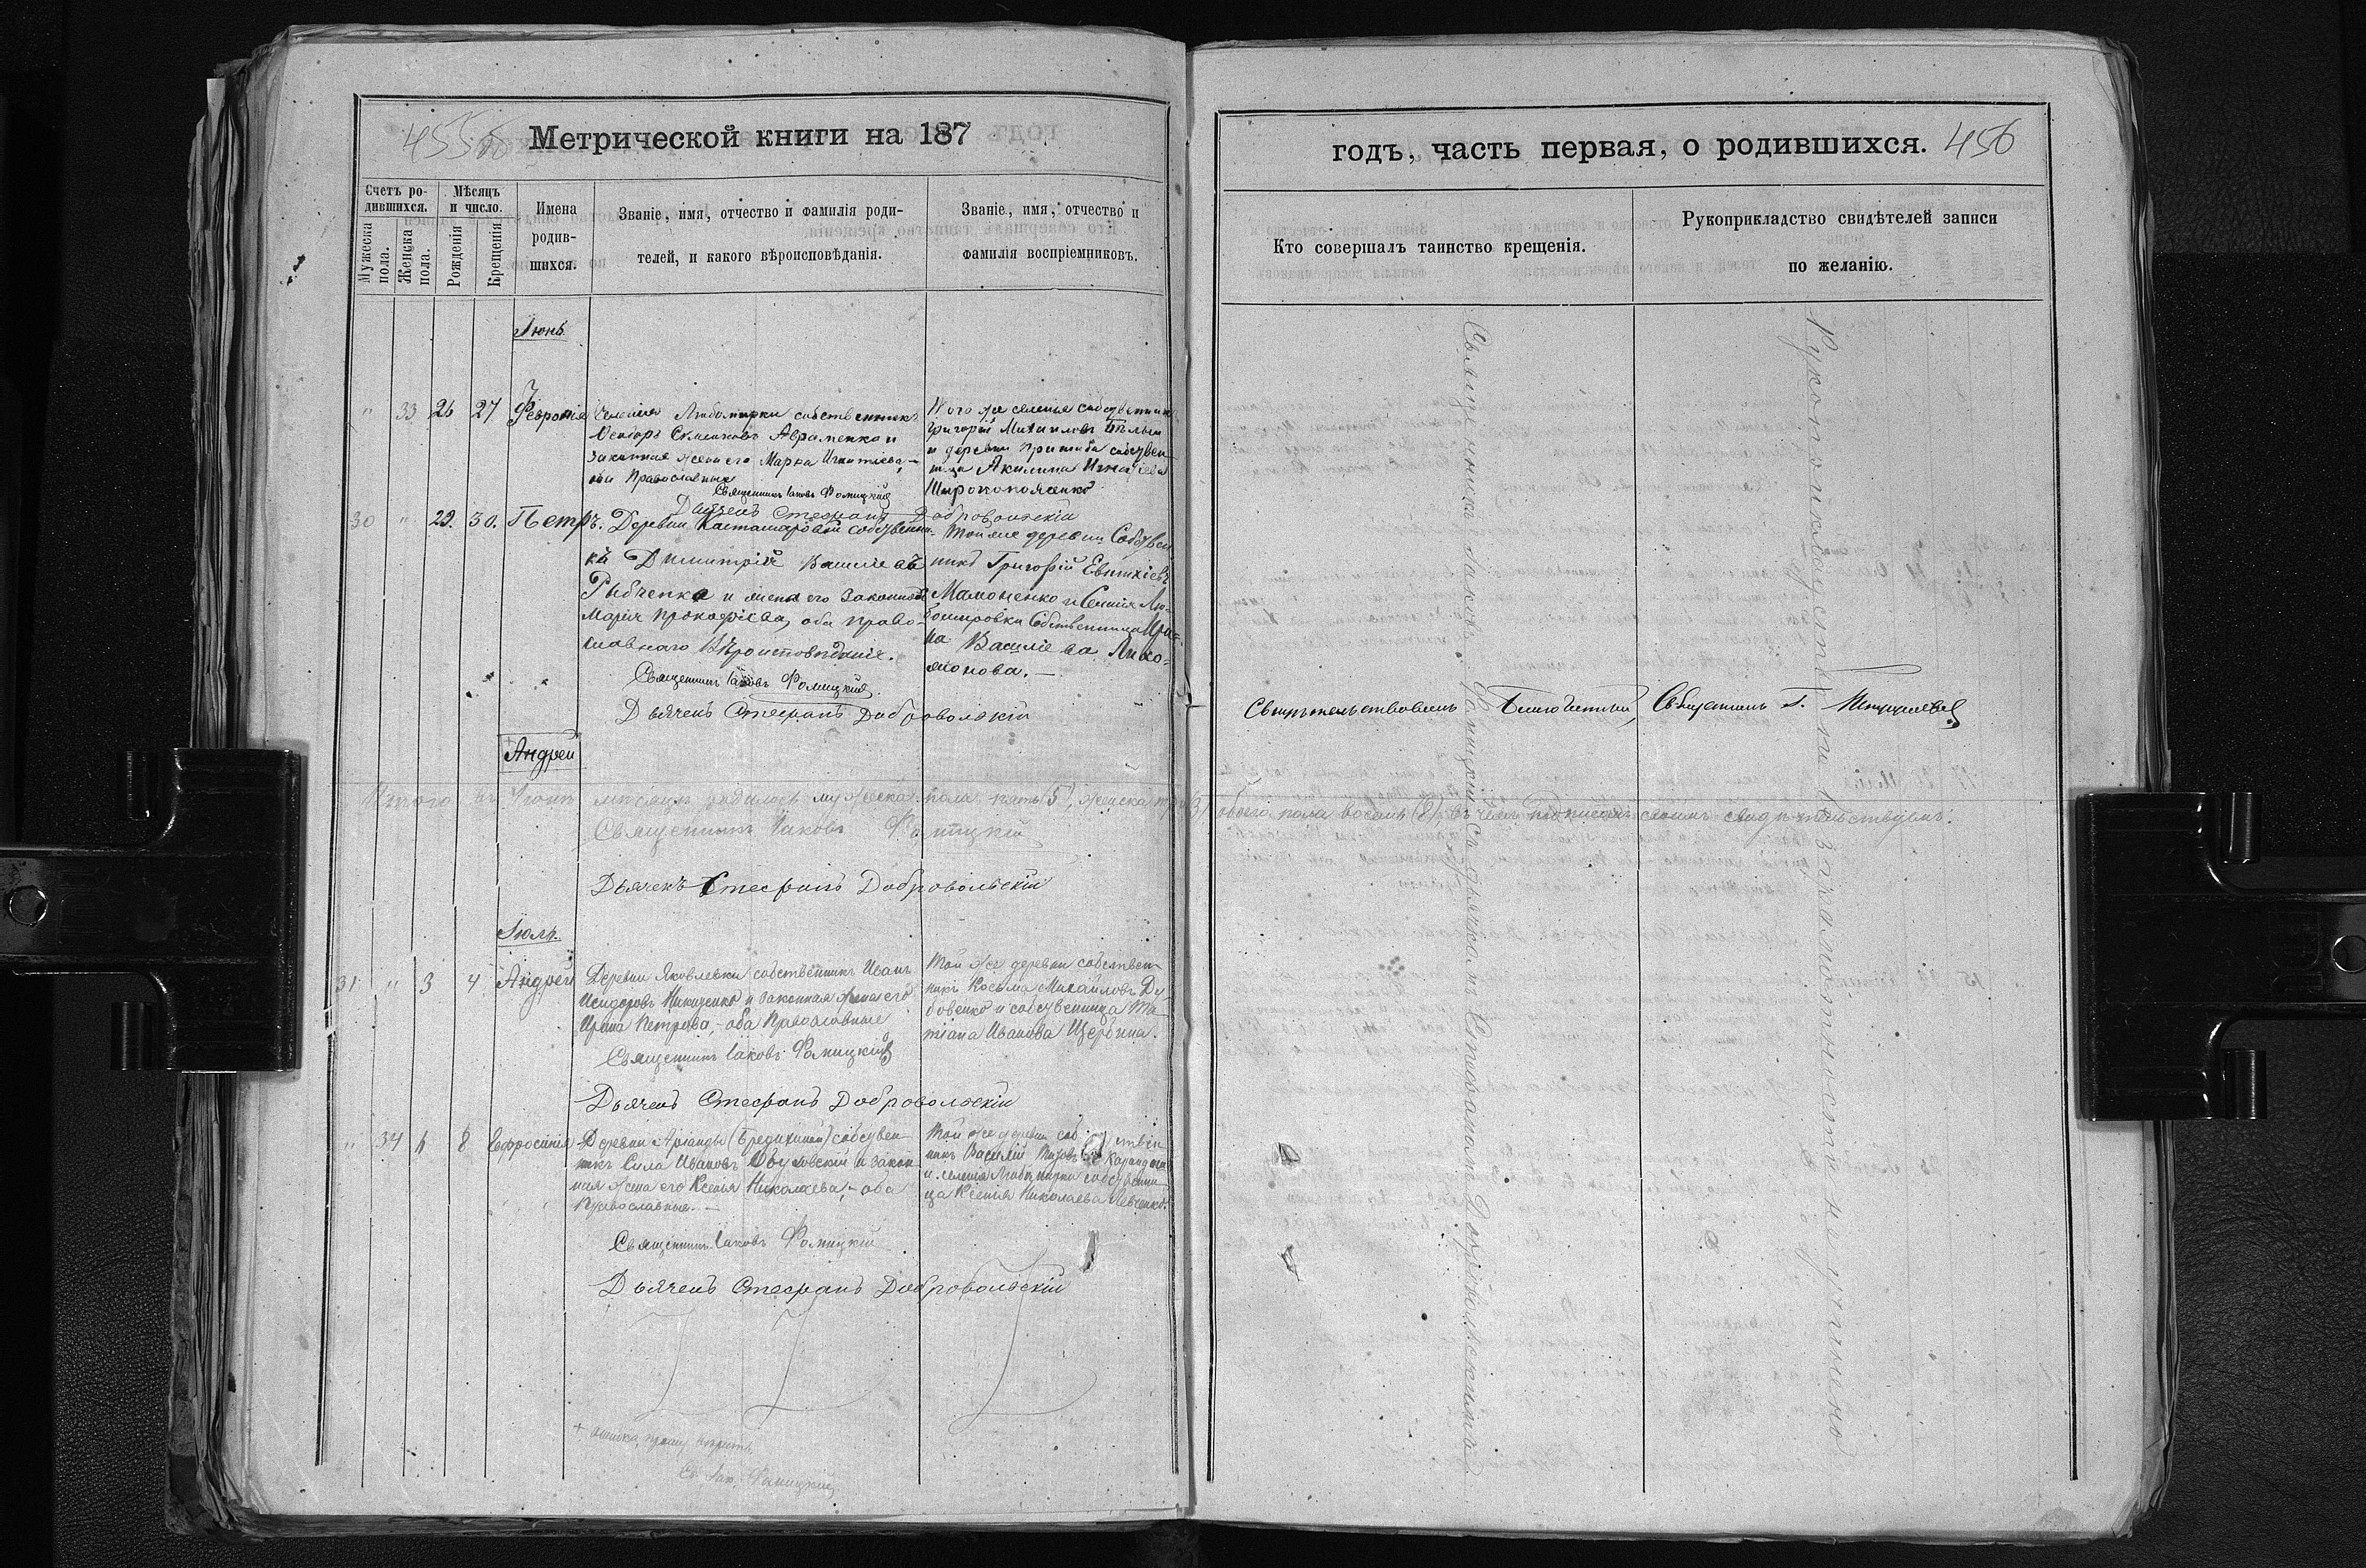 455об
Метрической книги на 187
Счетъ ро-
дившихся.
Мѣсяцъ
и число.
Мужеска
пола.
Женска
пола.
Рожденія
Крещенія.
Имена
родив-
шихся.
Званіе, имя, отчество и фамилія роди-
телей, и какого вѣроисповѣданія.
Званіе, имя, отчество и
фамилія воспріемниковъ.
Іюнь.
" 33 26 27 Февронія
Селенія Любимирки собственникъ
Авраменко и
законная жена его Марѳа Игнатіева,
оба Православные
Священникъ Іаковъ Фомицкій
Дьячекъ Стефанъ Добровольскій
Того же селенія собственникъ
Григорій Михаиловъ Бѣлый
и деревни Пришиба собствен-
ница Акилина Игнатіева
Широкопоясенко
30 " 29. 30. Петръ.
Деревни собственни-
къ Димитрій Василіевъ
Рыбченко и жена его Законная
Марія Прокофіева, оба право-
славнаго Вѣроисповѣданія.
Священникъ Іаковъ Фомицкій
Дьячекъ Стефанъ Добровольскій
Той же деревни Собствен
никъ Григорій Евтихіевъ
Мамоненко и Селенія Лю-
бомировки Собственница Ири-
на Василіева
Андрей
Итого въ Іюнѣ мѣсяцѣ родилось мужеска пола пять (5), женска три (3) обоего пола восемь (8) въ чемъ подписомъ своимъ свидѣтельствуемъ:
Священникъ Іаковъ Фомицкій
Дьячекъ Стефанъ Добровольскій
Іюль.
31 " 3 4 Андрей
Деревни Яковлевки собственникъ Иванъ
Исидоровъ Никиценко и законная жена его
Ирина Петрова, - оба Православные
Священникъ Іаковъ Фомицкій
Дьячекъ Стефанъ Добровольскій
Той же деревни собствен-
никъ Косьма Михайловъ Ду-
бовенко и собственница Та-
тіана Иванова Щербина.
" 34 6 8 Евфросинія
Деревни Аріанды (Бредихиной) собствен
никъ Сила Ивановъ и закон-
ная жена его Ксенія Николаева, - оба
Православные. -
Священникъ Іаковъ Фомицкій
Дьячекъ Стефанъ Добровольскій
Той же деревни собствен
никъ Василій
и селенія Любимирки собственни-
ца Ксенія Николаева Левченко.
+ ошибка, прошу вѣрить
Св. Іак. Фомицкій
годъ, часть первая, о родившихся.
456
Кто совершалъ таинство крещенія.
Рукоприкладство свидѣтелей записи
по желанію.
Священникъ Іаковъ Фомицкій съ дьячкомъ Стефаномъ Добровольскимъ
Рукоприкладства по безграмотности не учинено
Свидѣтельствовалъ Благочинный, Священникъ Г.